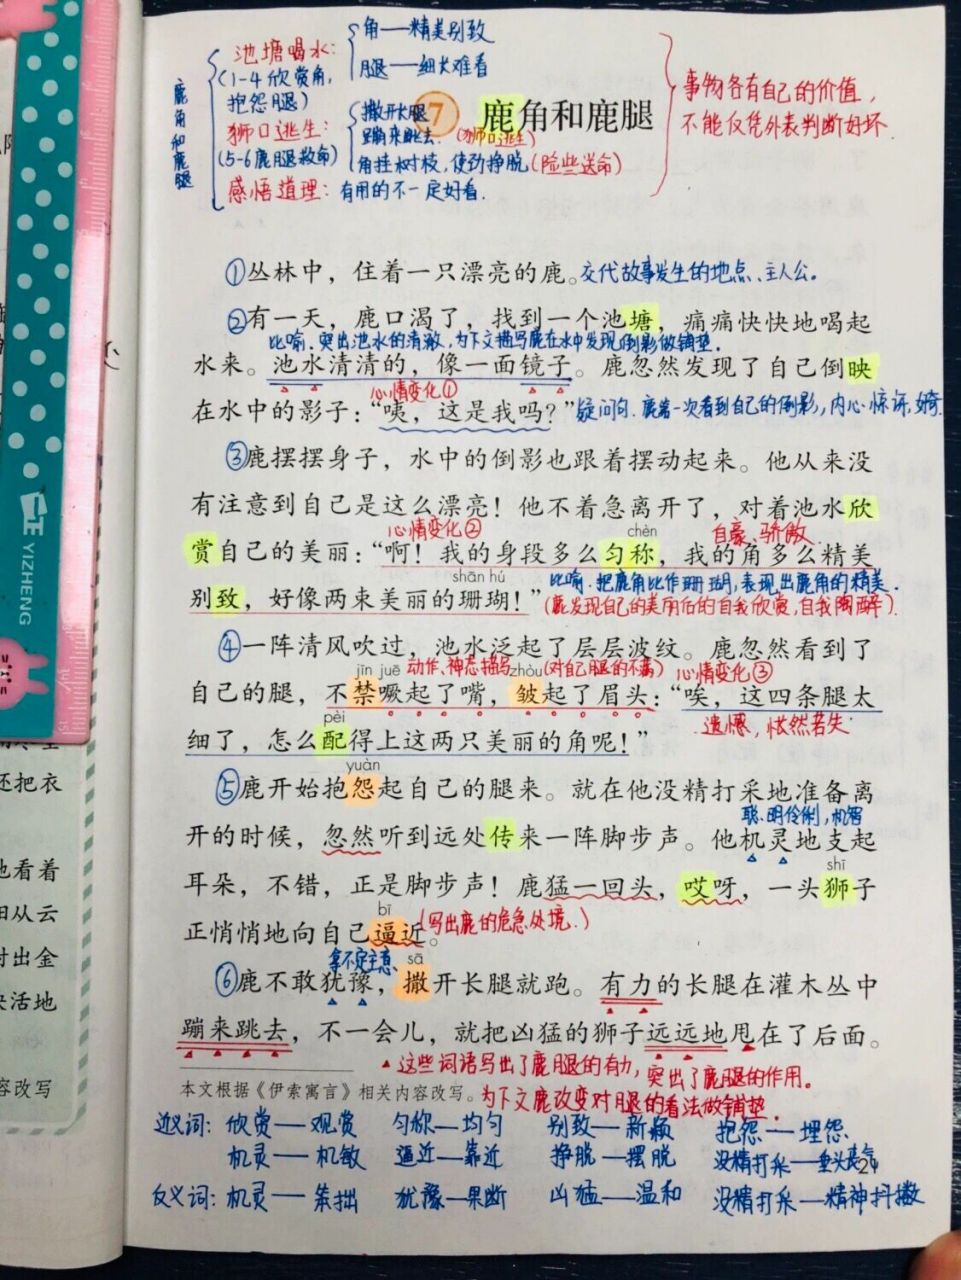 池塘喝水：
(1-4欣赏角，
抱怨腿)
狮口逃生：
(5-6鹿腿救命)
感悟道理：有用的不一定好看.
鹿角和鹿腿
角——精美别致
腿——细长难看
撒开长腿
蹦来跳去.(狮口逃生)
角挂树枝，使劲挣脱(险些送命)
事物各有自己的价值，
不能仅凭外表判断好坏.
7 鹿角和鹿腿
①丛林中，住着一只漂亮的鹿。交代故事发生的地点、主人公.
②有一天，鹿口渴了，找到一个池塘，痛痛快快地喝起
比喻.突出池水的清澈，为下文描写鹿在水中发现倒影做铺垫.
水来。池水清清的，像一面镜子。鹿忽然发现了自己倒映
心情变化①
在水中的影子：“咦，这是我吗？”疑问句.鹿第一次看到自己的倒影，内心惊讶，好奇.
③鹿摆摆身子，水中的倒影也跟着摆动起来。他从来没
有注意到自己是这么漂亮！他不着急离开了，对着池水欣
心情变化② chèn 自豪、骄傲
赏自己的美丽：“啊！我的身段多么匀称，我的角多么精美
shān hú 比喻.把鹿角比作珊瑚，表现出鹿角的精美.
别致，好像两束美丽的珊瑚！”(鹿发现自己的美丽后的自我欣赏，自我陶醉)
④一阵清风吹过，池水泛起了层层波纹。鹿忽然看到了
jīn juē 动作、神态描写 zhòu (对自己腿的不满) 心情变化③
自己的腿，不禁噘起了嘴，皱起了眉头：“唉，这四条腿太
pèi 遗憾，怅然若失
细了，怎么配得上这两只美丽的角呢！”
yuàn
⑤鹿开始抱怨起自己的腿来。就在他没精打采地准备离
聪明伶俐，机智
开的时候，忽然听到远处传来一阵脚步声。他机灵地支起
shī
耳朵，不错，正是脚步声！鹿猛一回头，哎呀，一头狮子
bī (写出鹿的危急处境.)
正悄悄地向自己逼近。
拿不定主意、 sā
⑥鹿不敢犹豫，撒开长腿就跑。有力的长腿在灌木丛中
蹦来跳去，不一会儿，就把凶猛的狮子远远地甩在了后面。
▲这些词语写出了鹿腿的有力，突出了鹿腿的作用.
本文根据《伊索寓言》相关内容改写。为下文鹿改变对腿的看法做铺垫.
近义词：欣赏——观赏 匀称——均匀 别致——新颖 抱怨——埋怨
机灵——机敏 逼近——靠近 挣脱——摆脱 没精打采——垂头丧气
反义词：机灵——笨拙 犹豫——果断 凶猛——温和 没精打采——精神抖擞
YIZHENG
还把衣
地看着
田从云
射出金
快活地
容改写